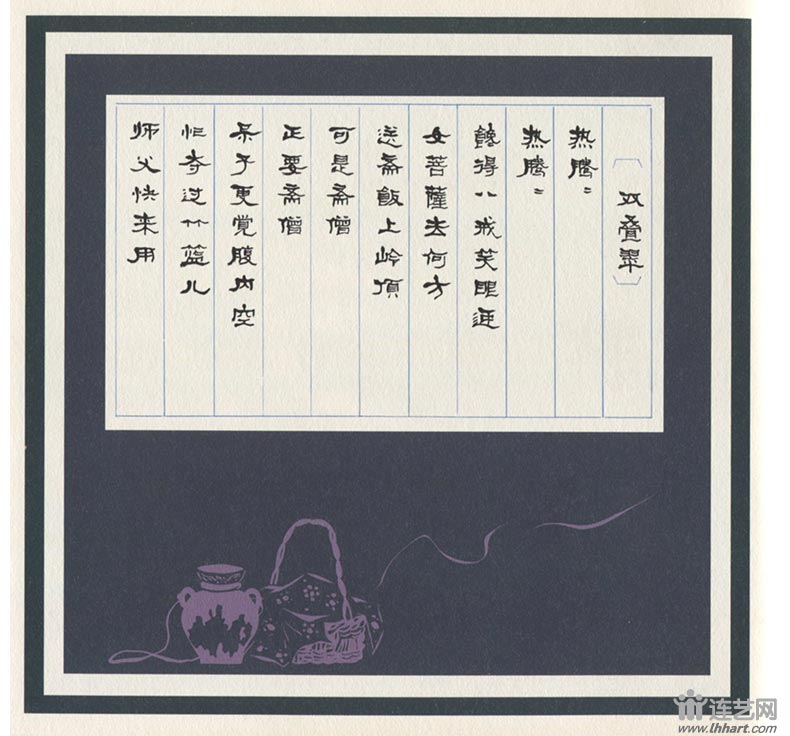 〔双叠翠〕
热腾〻
热腾〻
馋得八戒笑眼迎
女菩薩去何方
送斋飯上岭頂
可是斋僧
正要斋僧
呆子更覚腹内空
忙夺过竹篮儿
师父快来用
连艺网
www.lhhart.com